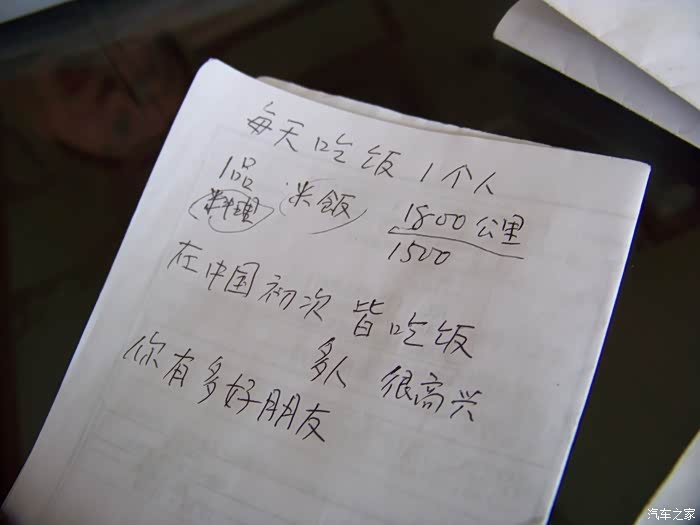 每天吃饭 1个人
1品
料理 米飯 1800公里
1500
在中国初次 皆吃饭
多人 很高兴
你有多好朋友
汽车之家